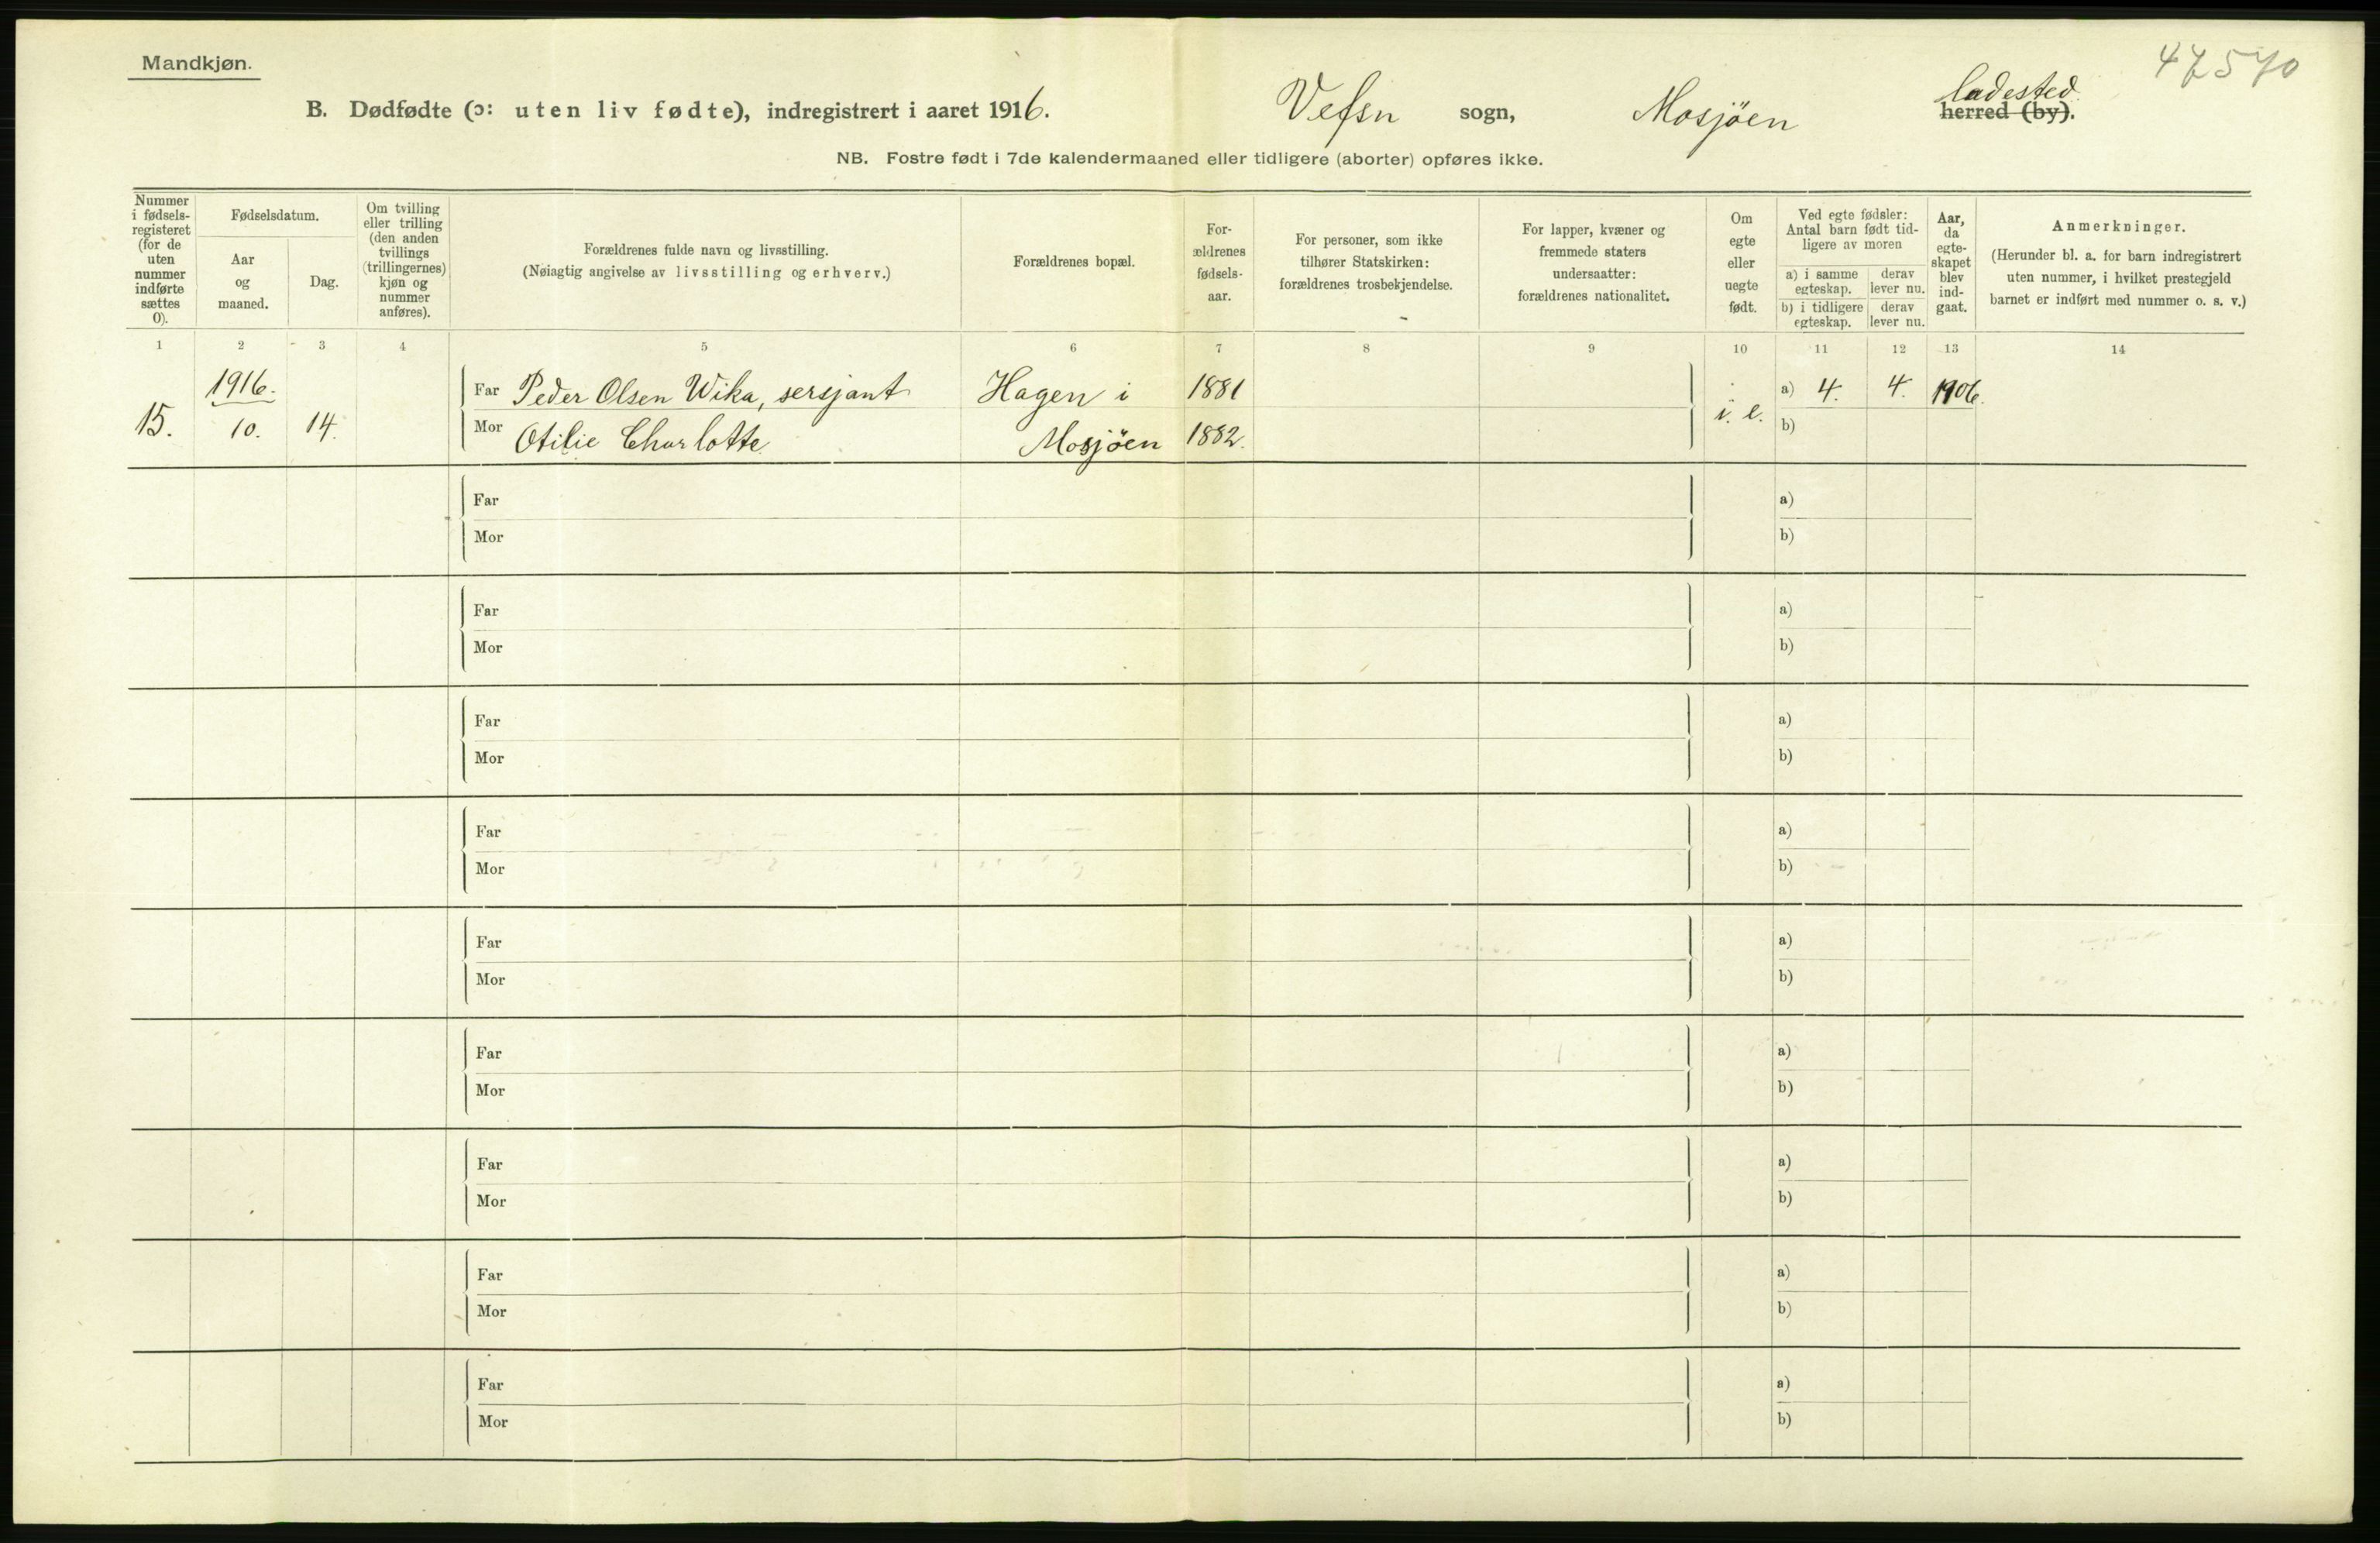 Mandkjøn.
47570
B. Dødfødte (ɔ: uten liv fødte), indregistrert i aaret 1916. Vefsn sogn, Mosjöen ladested herred (by).
NB. Fostre født i 7de kalendermaaned eller tidligere (aborter) opføres ikke.
Nummer i fødsels-registeret (for de uten nummer indførte sættes 0).
Fødselsdatum.
Aar og maaned.
Dag.
Om tvilling eller trilling (den anden tvillings (trillingernes) kjøn og nummer anføres).
Forældrenes fulde navn og livsstilling.
(Nøiagtig angivelse av livsstilling og erhverv.)
Forældrenes bopæl.
For-ældrenes fødsels-aar.
For personer, som ikke tilhører Statskirken: forældrenes trosbekjendelse.
For lapper, kvæner og fremmede staters undersaatter: forældrenes nationalitet.
Om egte eller uegte født.
Ved egte fødsler: Antal barn født tid-ligere av moren
a) i samme egteskap.
derav lever nu.
b) i tidligere egteskap.
derav lever nu.
Aar, da egte-skapet blev ind-gaat.
Anmerkninger.
(Herunder bl. a. for barn indregistrert uten nummer, i hvilket prestegjeld barnet er indført med nummer o. s. v.)
1 2 3 4 5 6 7 8 9 10 11 12 13 14
1916.
Far Peder Olsen Wika, sersjant Hagen i 1881 a) 4. 4. 1906.
15. 10. 14. Mor Otilie Charlotte Mosjöen 1882. i. e. b)
Far a)
Mor b)
Far a)
Mor b)
Far a)
Mor b)
Far a)
Mor b)
Far a)
Mor b)
Far a)
Mor b)
Far a)
Mor b)
Far a)
Mor b)
Far a)
Mor b)